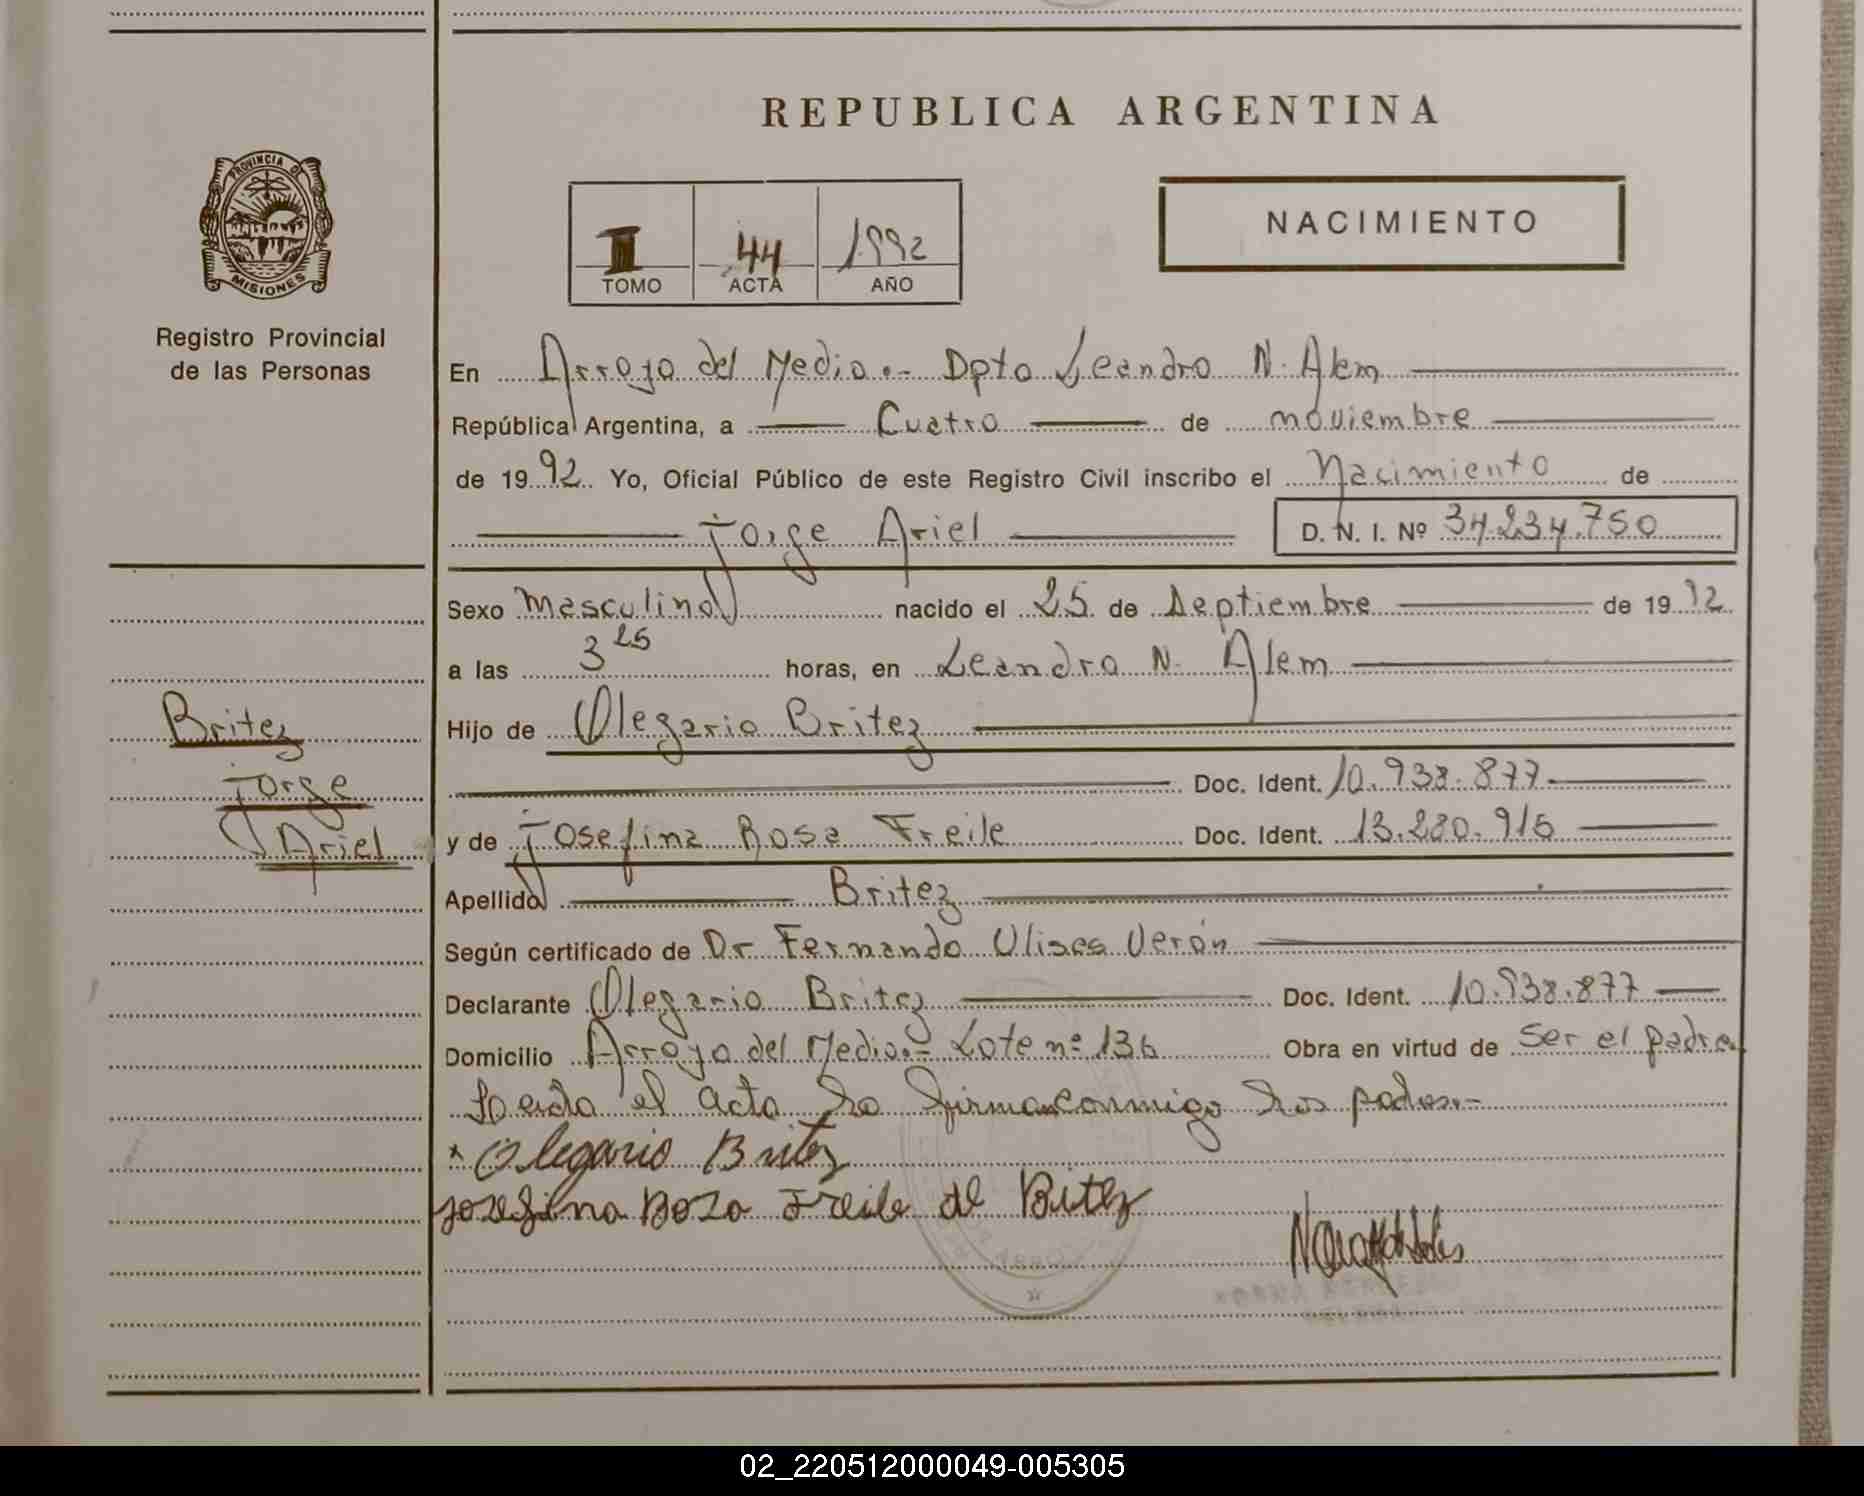 REPUBLICA ARGENTINA
PROVINCIA DE
MISIONES
Registro Provincial
de las Personas
I 44 1992
TOMO ACTA AÑO
NACIMIENTO
En Arroyo del Medio.- Dpto Leandro N. Alem
República Argentina, a Cuatro de noviembre
de 1992. Yo, Oficial Público de este Registro Civil inscribo el Nacimiento de
Jorge Ariel D. N. I. Nº 34.234.750
Sexo Masculino nacido el 25 de Septiembre de 1992
a las 3 25 horas, en Leandro N. Alem
Hijo de Olegario Britez
Doc. Ident. 10.938.877
y de Josefina Rosa Freile Doc. Ident. 13.280.915
Apellido Britez
Según certificado de Dr. Fernando Ulises Verón
Declarante Olegario Britez Doc. Ident. 10.938.877
Domicilio Arroyo del Medio.- Lote nº 136 Obra en virtud de ser el padre
el acta conmigo los padres.-
Olegario Britez
Josefina Roza Freile de Britez
Britez
Jorge
Ariel
02_220512000049-005305